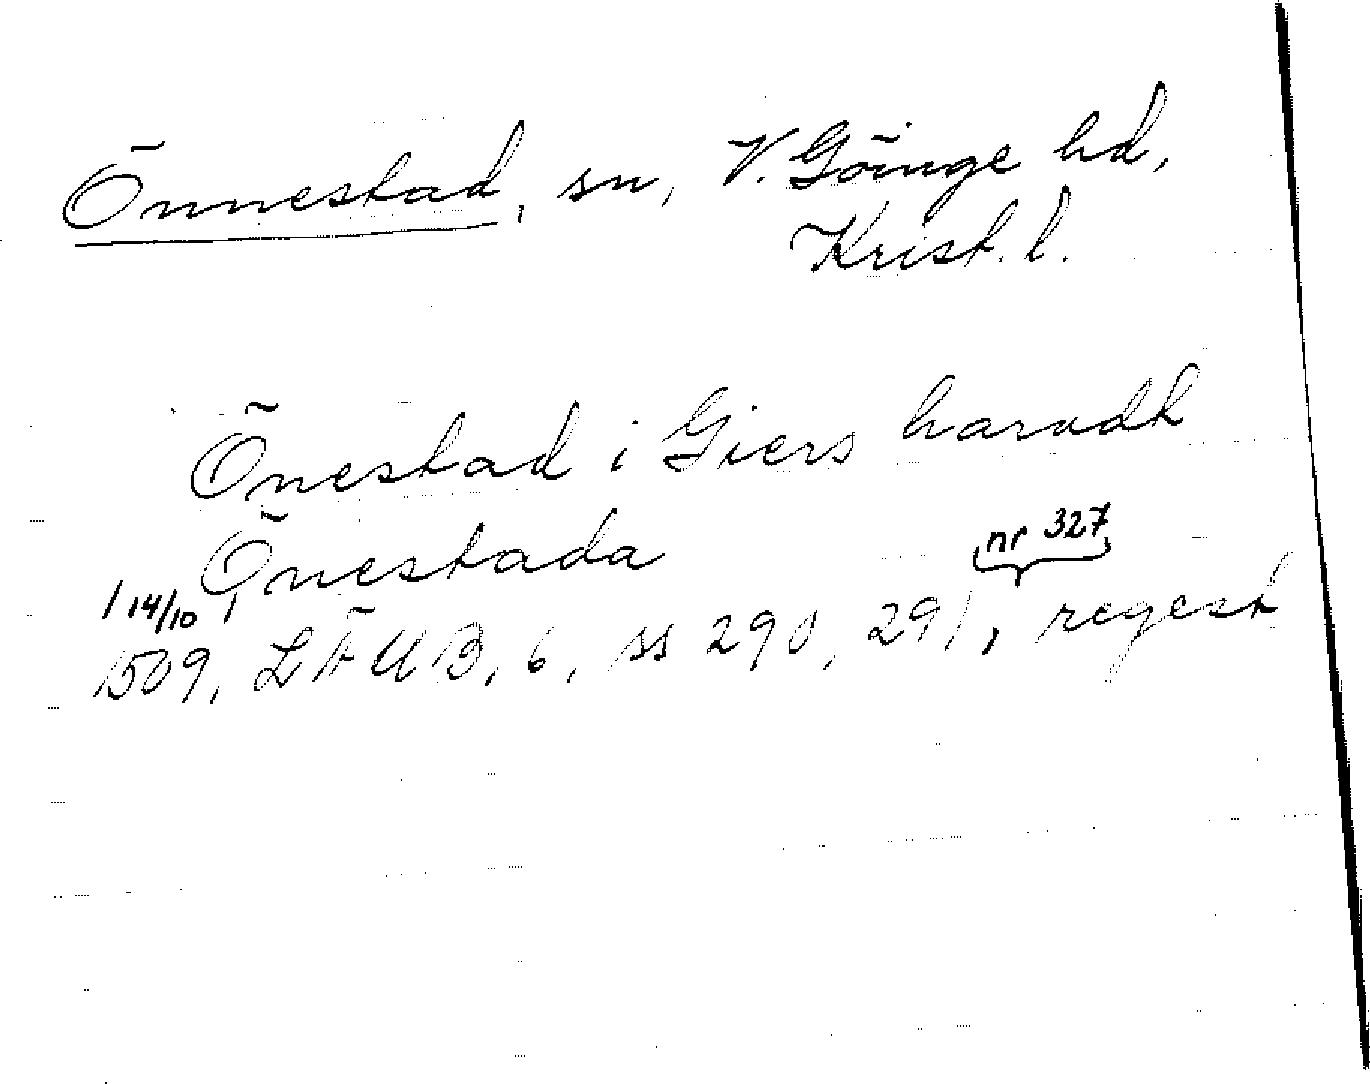 Önnestad, sn, V. Göinge hd,
Krist. l.
Önestad i Giers haradh
Önestada
nr 327
/ 14/10 /
1509, LÄUB, 6, ss 290, 291, regest